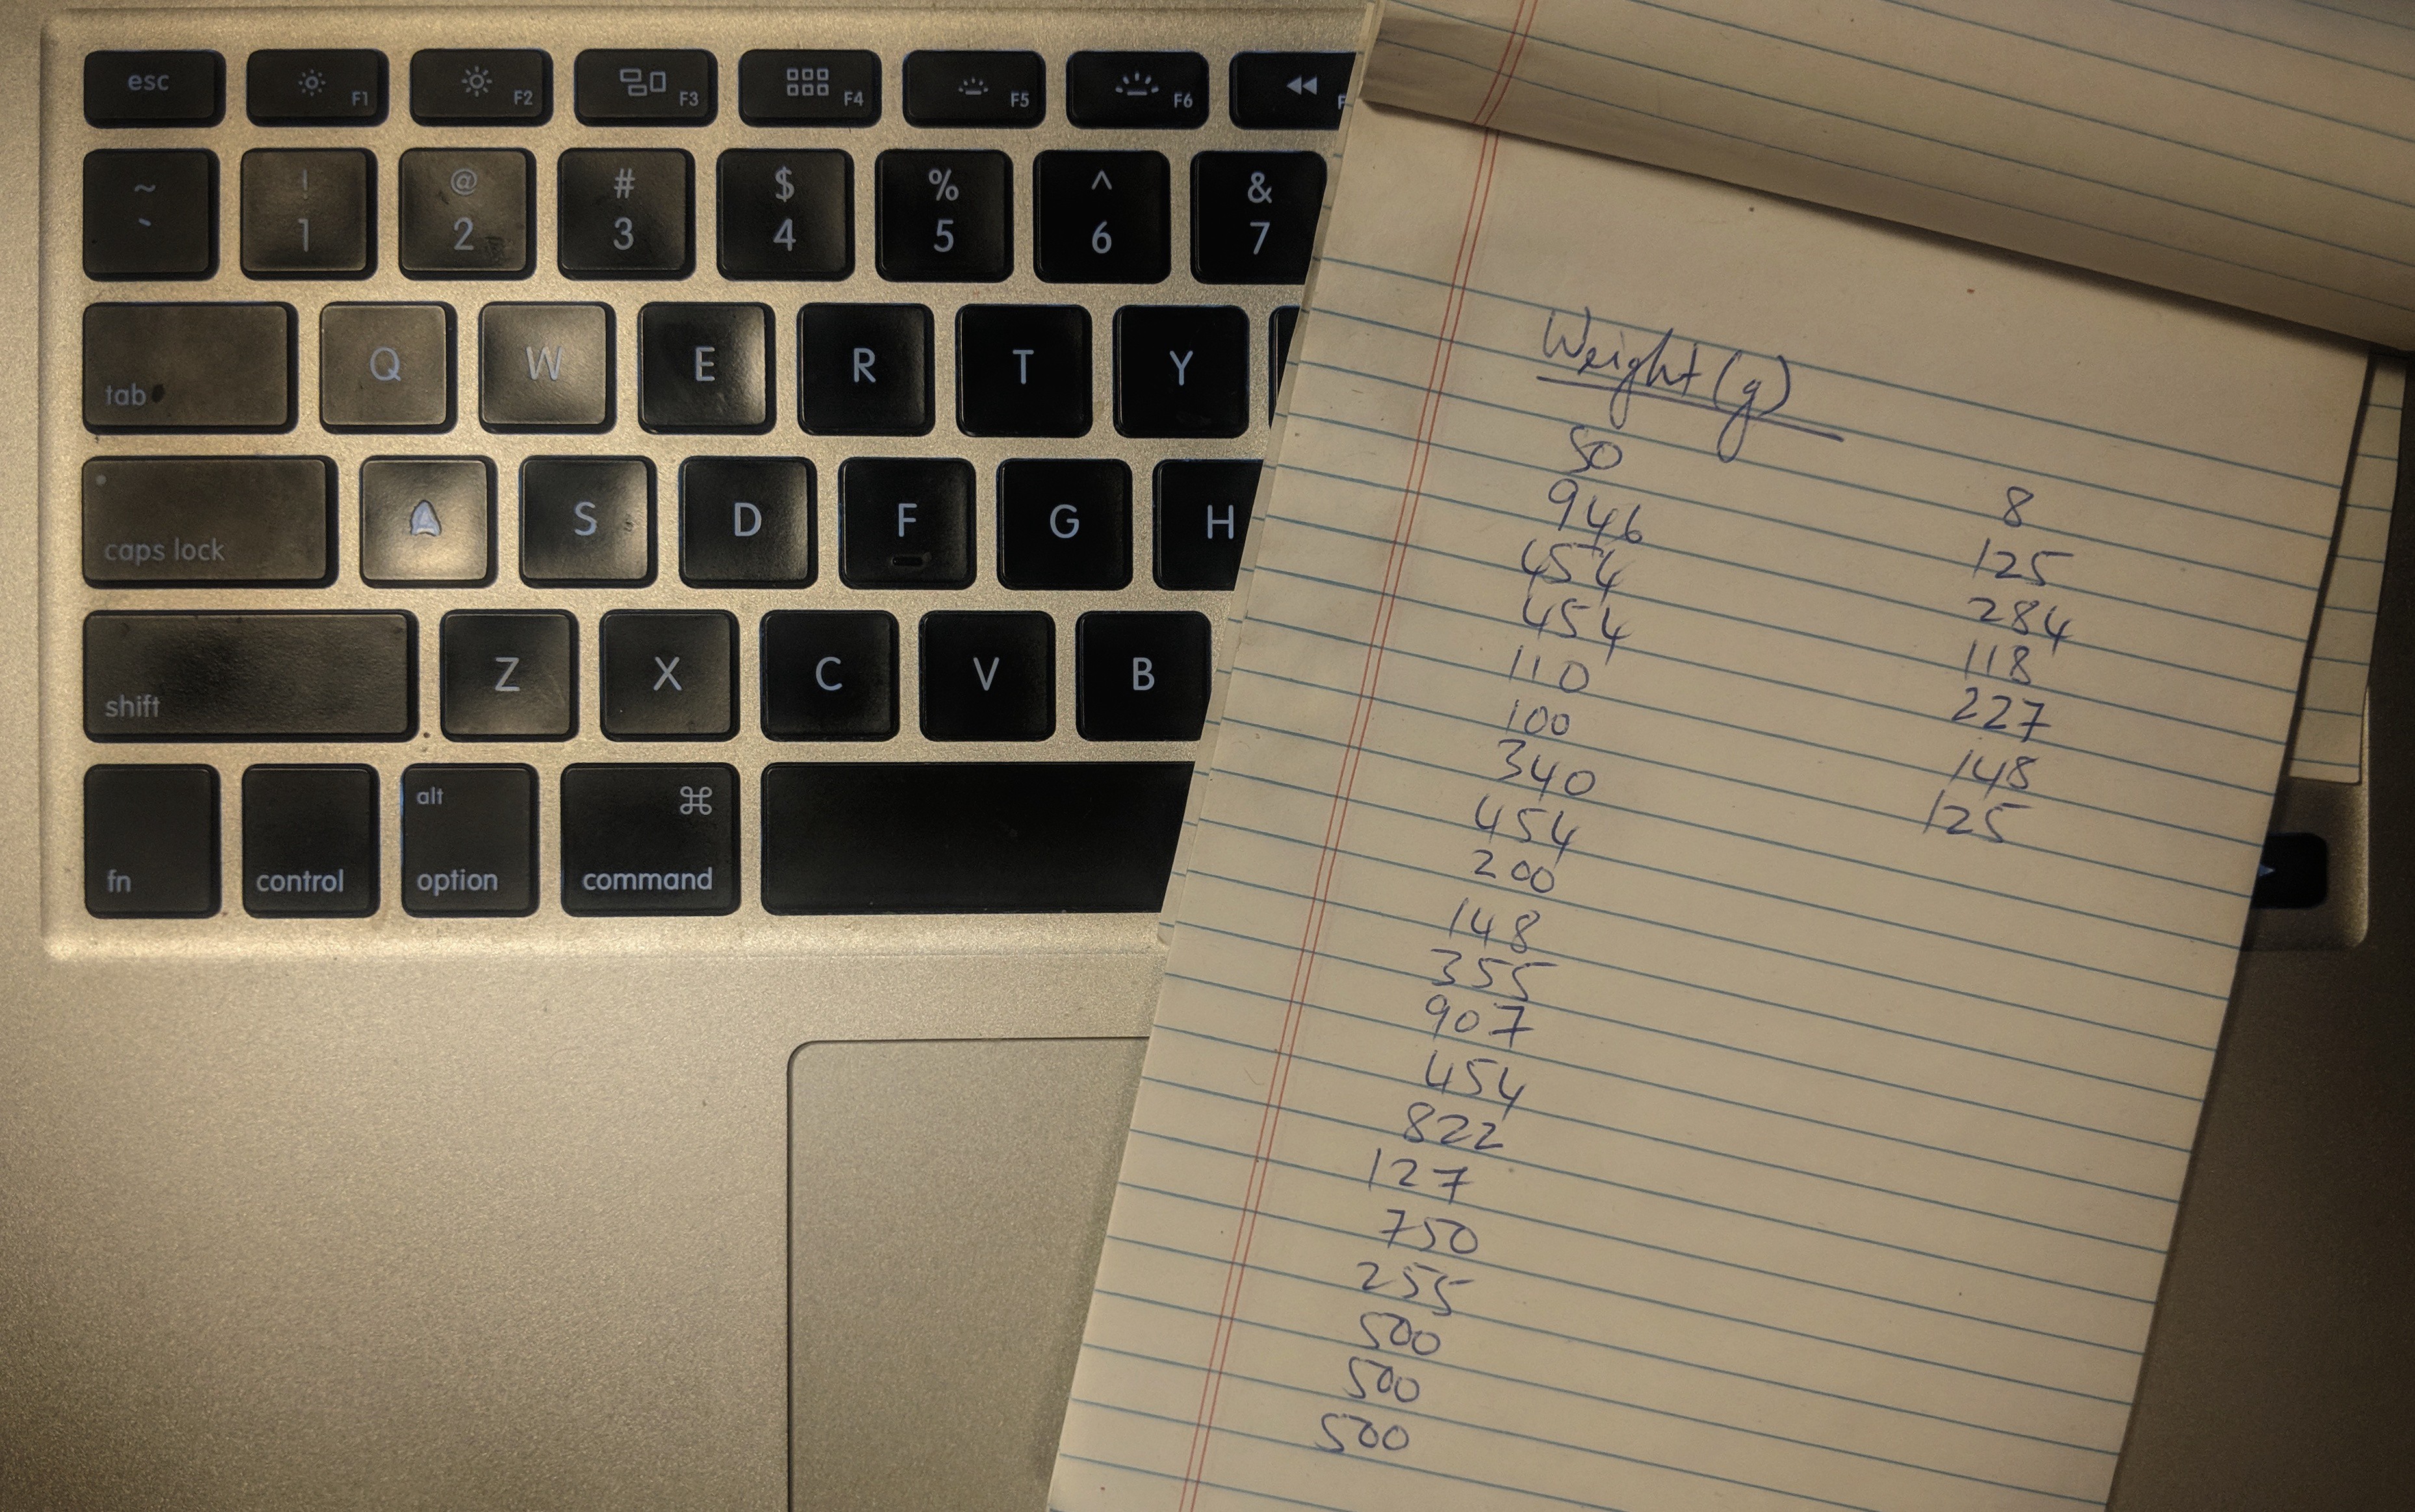 esc F1 F2 F3 F4 F5 F6
~ ! @ # $ % ^ &
` 1 2 3 4 5 6 7
tab Q W E R T Y
caps lock A S D F G H
shift Z X C V B
fn control alt option ⌘ command
Weight (g)
50
946
454
454
110
100
340
454
200
148
355
907
454
822
127
750
255
500
500
500
8
125
284
118
227
148
125